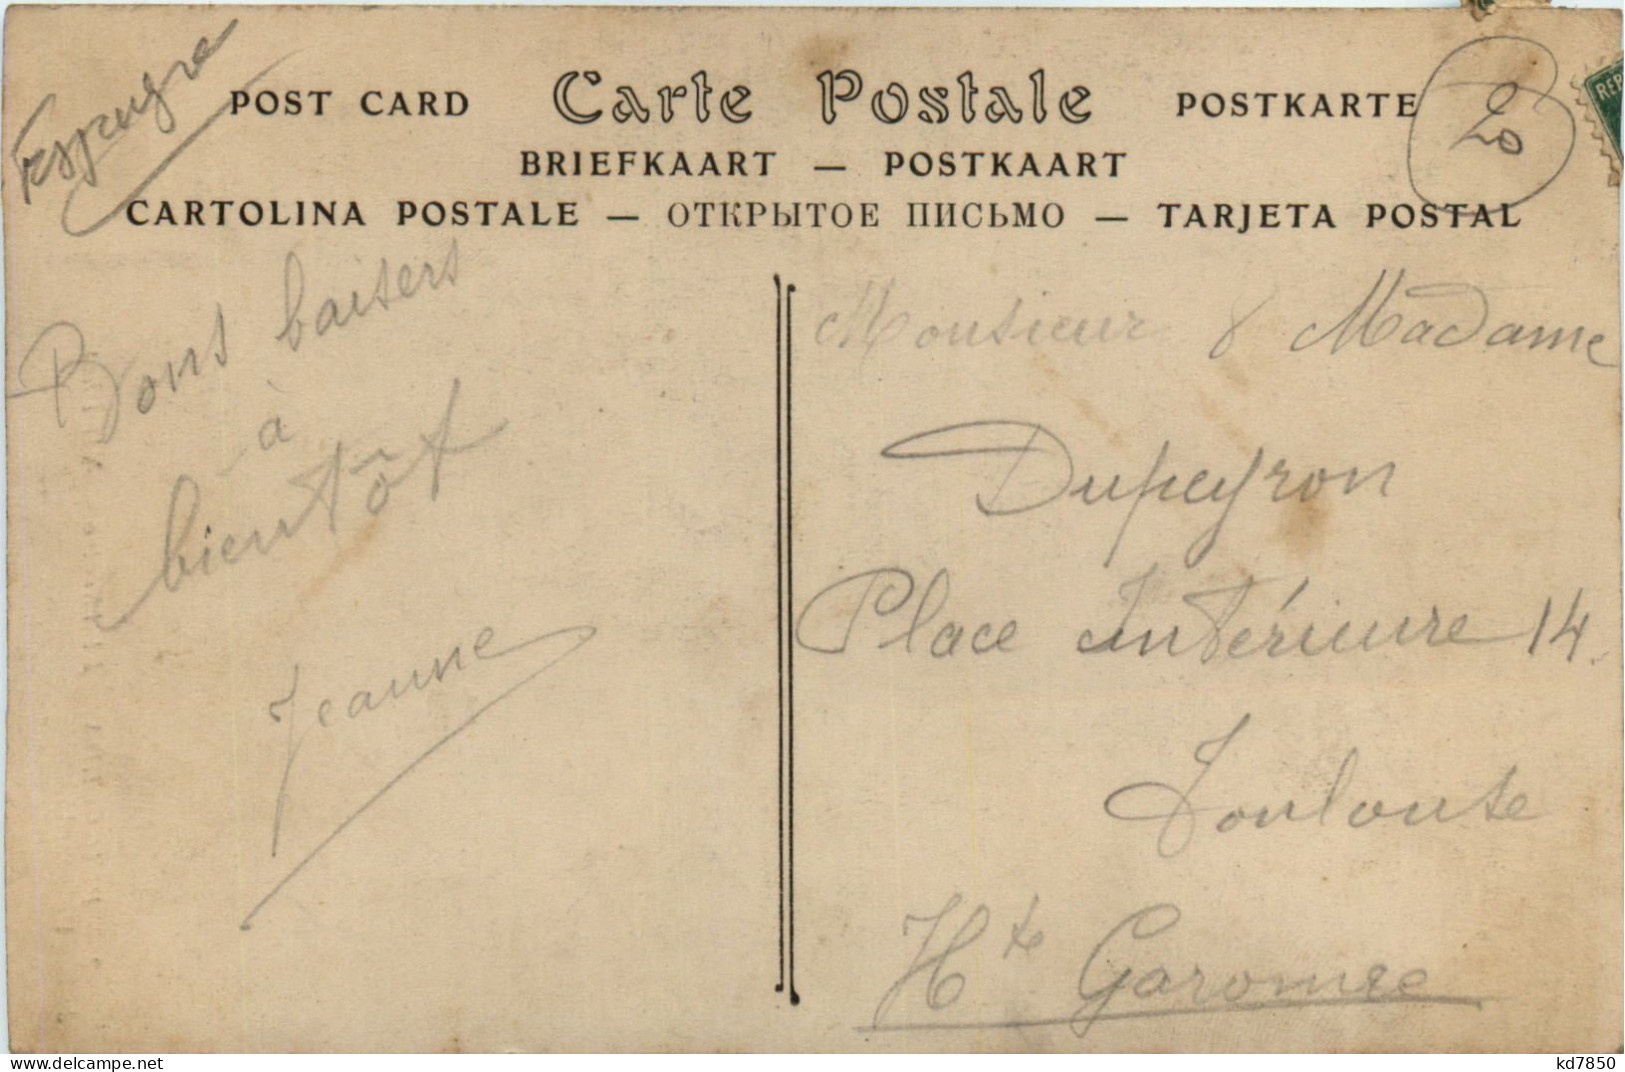 Espagne
POST CARD Carte Postale POSTKARTE
20
REP
BRIEFKAART — POSTKAART
CARTOLINA POSTALE — ОТКРЫТОЕ ПИСЬМО — TARJETA POSTAL
Bons baisers
à
bientôt
Jeanne
Monsieur & Madame
Dupeyron
Place Intérieure 14
Toulouse
Hte Garonne
www.delcampe.net
kd7850